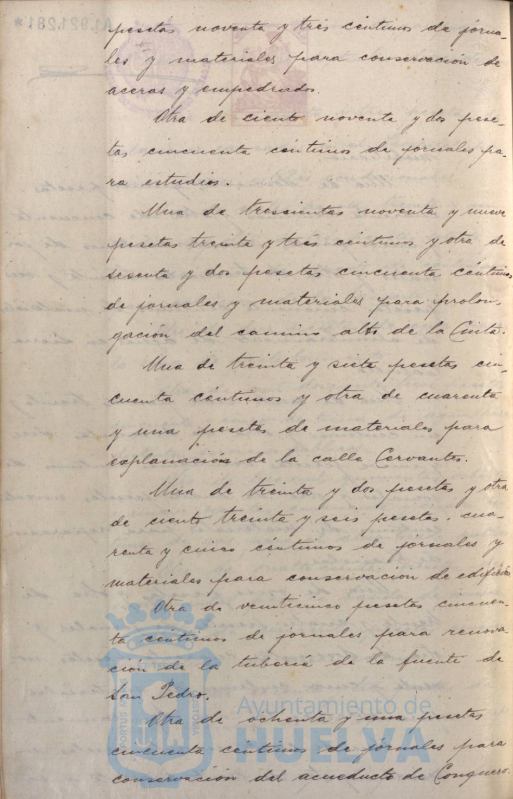 A1.921.281*
pesetas noventa y tres céntimos de jorna-
les y materiales para conservación de
aceras y empedrados.
Otra de ciento noventa y dos pese-
tas cincuenta céntimos de jornales pa-
ra estudios.
Una de trescientas noventa y nueve
pesetas treinta y tres céntimos y otra de
sesenta y dos pesetas cincuenta céntimos
de jornales y materiales para prolon-
gación del camino alto de la Cinta.
Una de treinta y siete pesetas cin-
cuenta céntimos y otra de cuarenta
y una pesetas de materiales para
explanación de la calle Cervantes.
Una de treinta y dos pesetas y otra
de ciento treinta y seis pesetas cua-
renta y cinco céntimos de jornales y
materiales para conservación de edificios
Otra de veinticinco pesetas cincuen-
ta céntimos de jornales para renova-
ción de la tubería de la fuente de
San Pedro.
Otra de ochenta y una pesetas
cincuenta céntimos de jornales para
conservación del acueducto de Conquero.
Ayuntamiento de
HUELVA